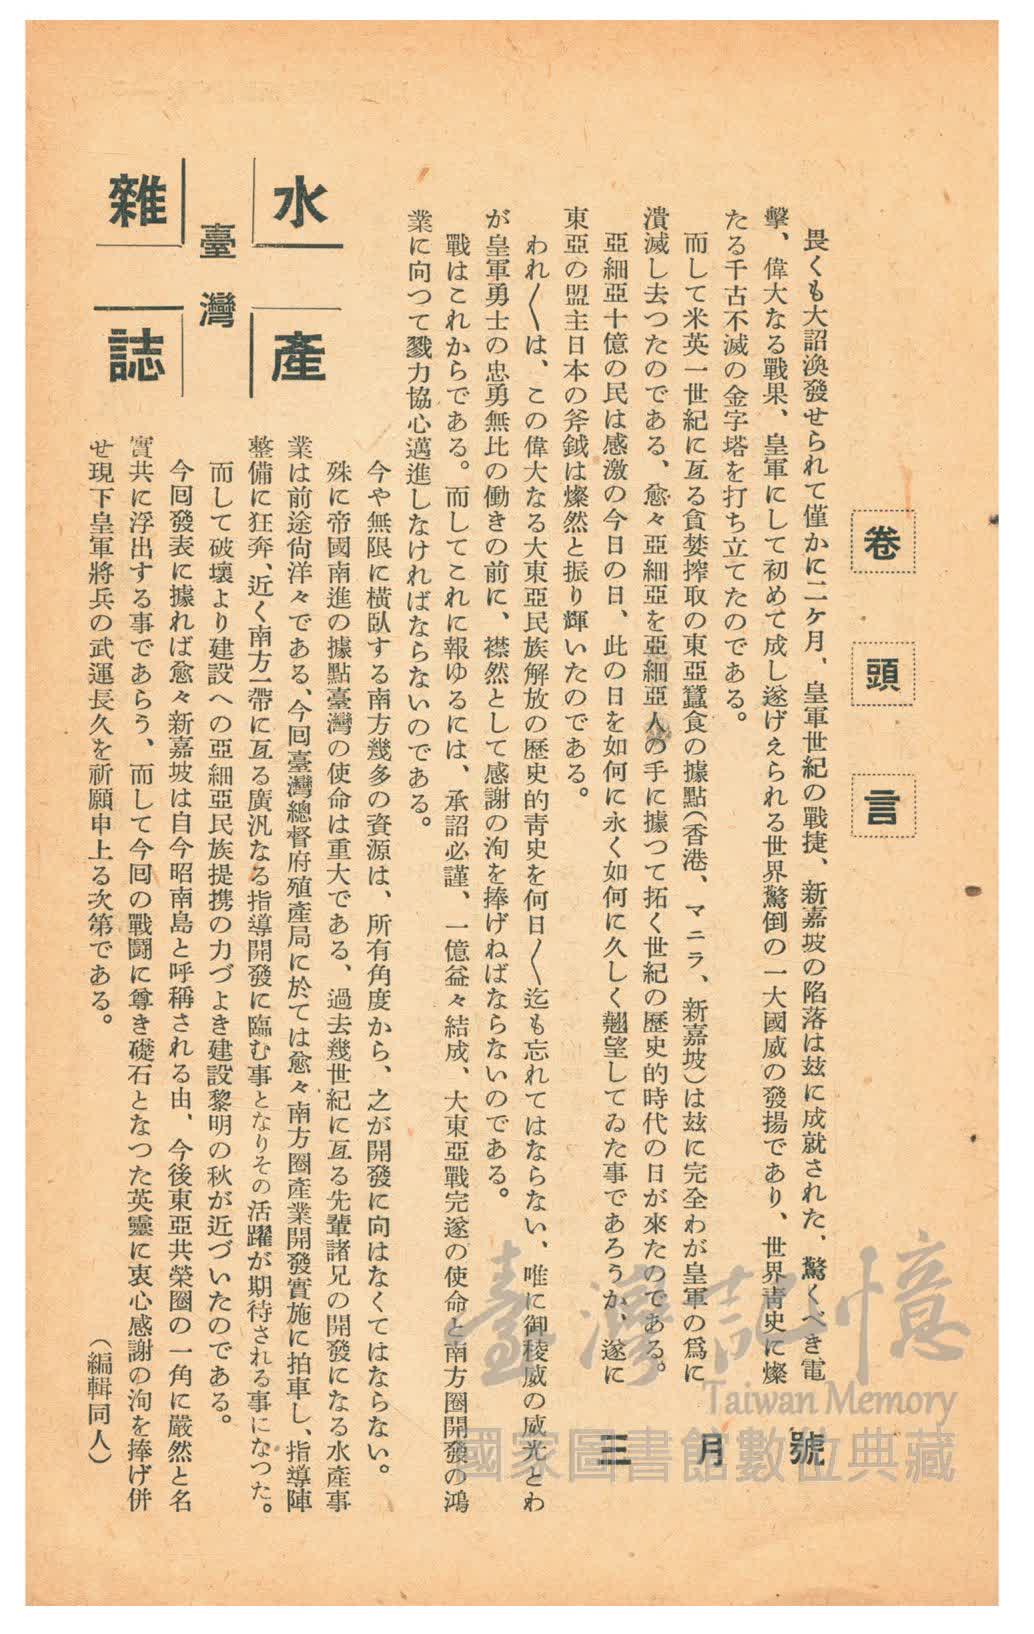 卷頭言
畏くも大詔渙發せられて僅かに二ケ月、皇軍世紀の戰捷、新嘉坡の陷落は玆に成就された、驚くべき電
擊、偉大なる戰果、皇軍にして初めて成し遂げえられる世界驚倒の一大國威の發揚であり、世界靑史に燦
たる千古不滅の金字塔を打ち立てたのである。
而して米英一世紀に亙る貪婪搾取の東亞蠶食の據點(香港、マニラ、新嘉坡)は玆に完全わが皇軍の爲に
潰滅し去つたのである、愈々亞細亞を亞細亞人の手に據つて拓く世紀の歷史的時代の日が來たのである。
亞細亞十億の民は感激の今日の日、此の日を如何に永く如何に久しく翹望してゐた事であろうか、遂に
東亞の盟主日本の斧鉞は燦然と振り輝いたのである。
われ〱は、この偉大なる大東亞民族解放の歷史的靑史を何日〱迄も忘れてはならない、唯に御稜威の威光とわ
が皇軍勇士の忠勇無比の働きの前に、襟然として感謝の洵を捧げねばならないのである。
戰はこれからである。而してこれに報ゆるには、承詔必謹、一億益々結成、大東亞戰完遂の使命と南方圈開發の鴻
業に向つて戮力協心邁進しなければならないのである。
今や無限に橫臥する南方幾多の資源は、所有角度から、之が開發に向はなくてはならない。
殊に帝國南進の據點臺灣の使命は重大である、過去幾世紀に亙る先輩諸兄の開發になる水產事
業は前途尙洋々である、今回臺灣總督府殖產局に於ては愈々南方圈產業開發實施に拍車し、指導陣
整備に狂奔、近く南方一帶に亙る廣汎なる指導開發に臨む事となりその活躍が期待される事になつた。
而して破壞より建設への亞細亞民族提携の力づよき建設黎明の秋が近づいたのである。
今回發表に據れば愈々新嘉坡は自今昭南島と呼稱される由、今後東亞共榮圈の一角に嚴然と名
實共に浮出する事であらう、而して今回の戰鬪に尊き礎石となつた英靈に衷心感謝の洵を捧げ併
せ現下皇軍將兵の武運長久を祈願申上る次第である。
(編輯同人)
水產
臺灣
雜誌
三月號
臺灣記憶
Taiwan Memory
國家圖書館數位典藏